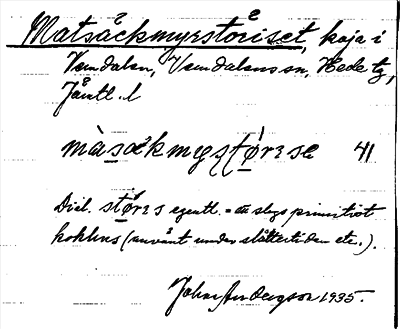 Matsäckmyrståriset, koja i
Vemdalen, Vemdalens sn, Hede tg,
Jämtl. l
màsäkmystøre se 41
Dial. støres egentl. = ett slags primitivt
kokhus (använt under slåttertiden etc.).
Johan Andersson 1935.